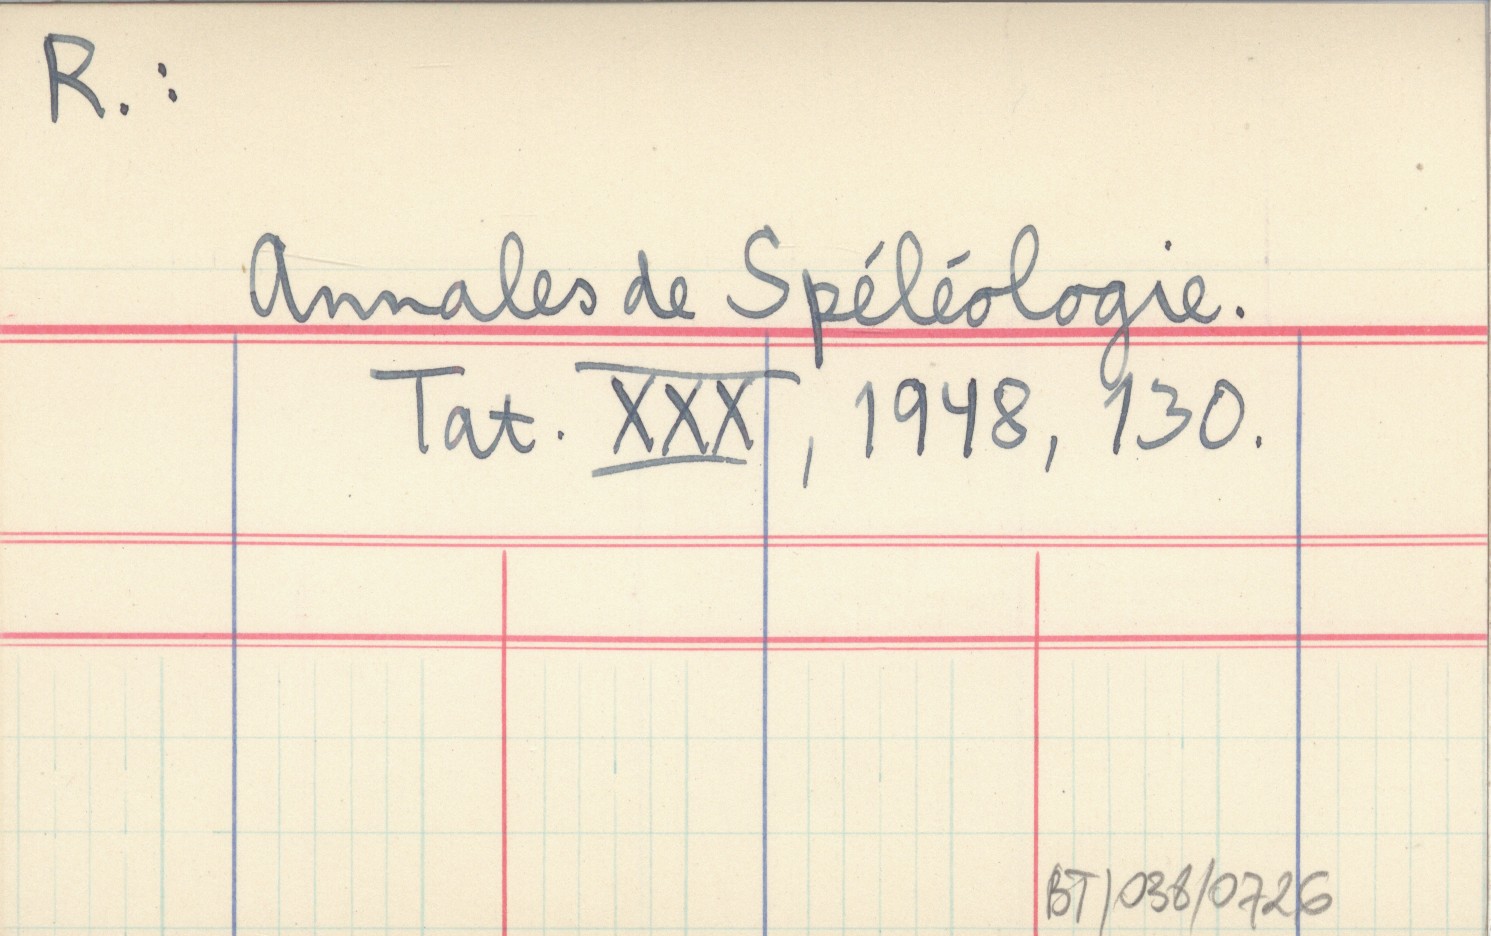 R.:
Annales de Spéléologie.
Tat. XXX, 1948, 130.
BT/038/0726